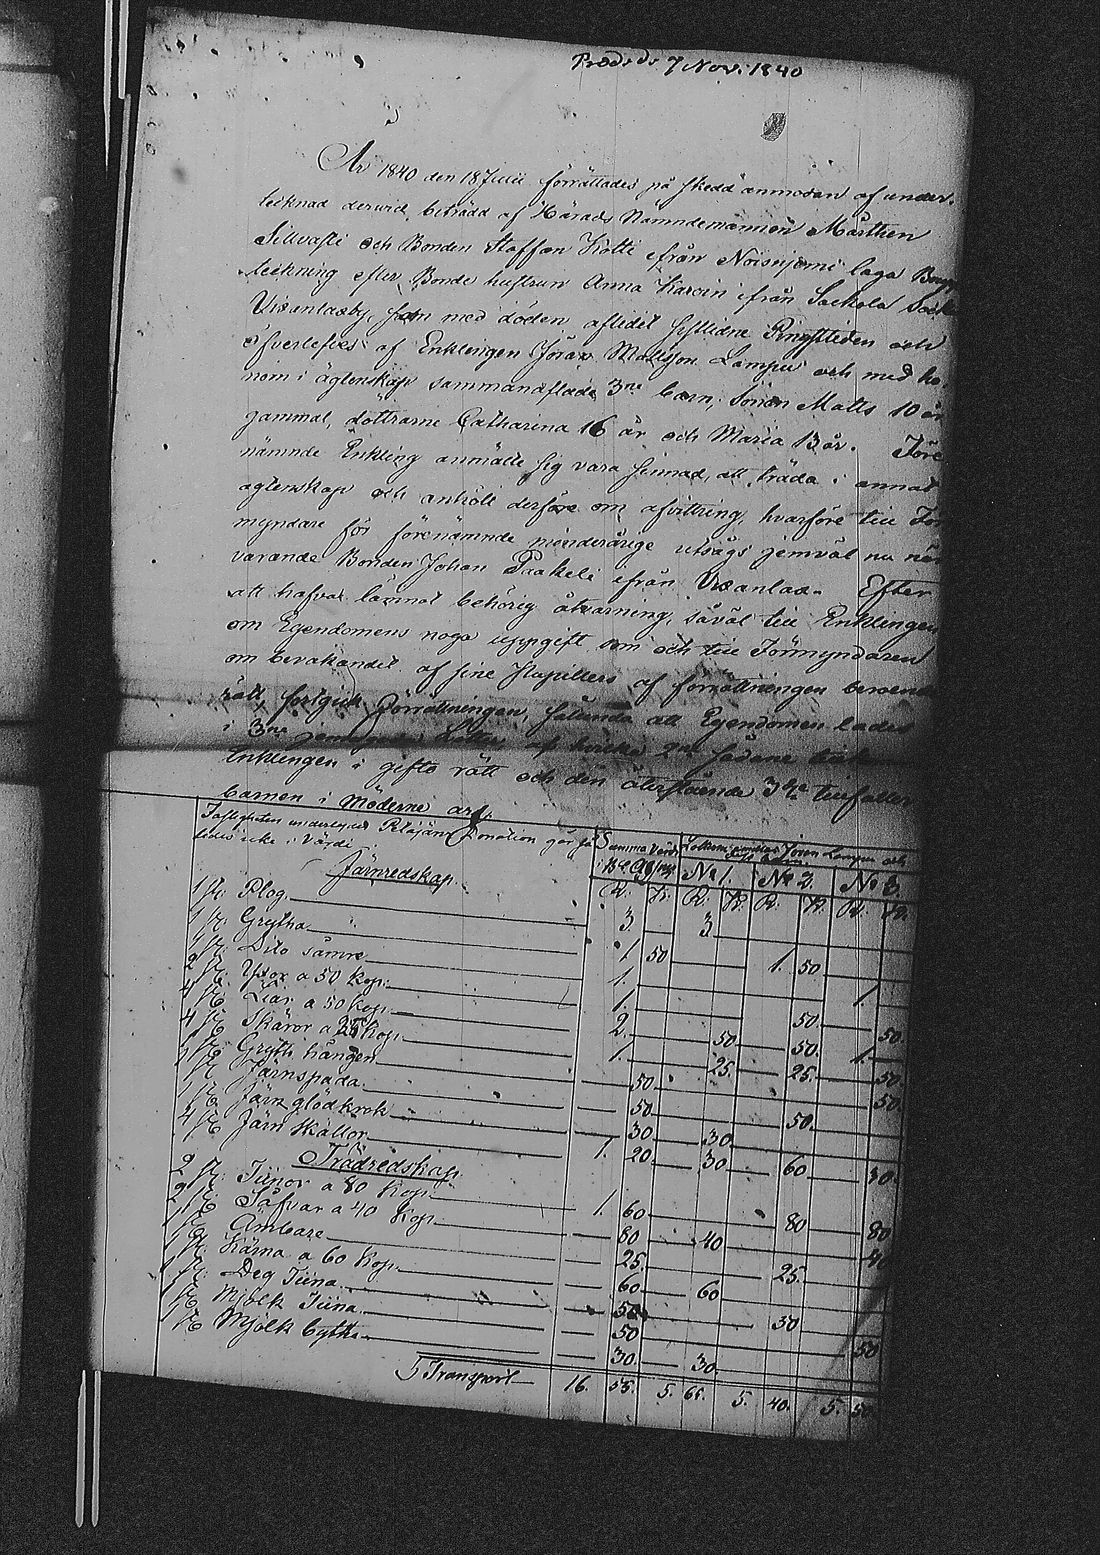 Prods ds 7 Nov: 1840
År 1840 den 18 Junii förrättades på skedd anmodan af under-
tecknad derwid biträdd af Härads Nämndemannen Mårthen
Sillvasti och Bonden Staffan Kotti ifrån Noisniemi laga
teckning efter Bonde hustrun Anna Karvin ifrån Sackola
med döden aflidit sistlidne och
öfverlefves af Enklingen Jöran Mattsson Lampu och med ho-
nom i ägtenskap sammanaflade 3ne barn, Sonen Matts 10 år
gammal, döttrarne Catharina 16 år och Maria 13 år. Före
nämnde Enkling anmälte sig vara sinnad, att träda i annat
ägtenskap och anhöll derföre om afvittring, hvarföre till För
myndare för förenämnde minderårige utsågs jemväl nu när
varande Bonden Johan Paakeli ifrån Efter
att hafva lämnat behörig åtvarning, såväl till Enklingen
om Egendomens noga uppgift som och till Förmyndaren
om bevakandet af sine af förrättningen beroende
rätt fortgick förrättningen, sålunda att Egendomen lades
i 3ne Lotter, af hvilka 2ne
Enklingen i gifto rätt och den återstående 3dje tillfaller
barnen i Möderne arf.
Donation går så
ledes icke i Värdi Summa Värde Jöran Lampu och
N: 1. N: 2. N: 3.
Järnredskap. R. K. R. K. R. K. R. K.
1 st. Plog 3. 3
1 st. Grytha 1. 50 1. 50
1 st. Dito sämre 1. 1.
2 st. Yxor a 50 Kop. 1. 50. 50.
4 st. Liar a 50 Kop. 2. 50. 50. 1.
4 st. Skäror a 25 Kop. 1. 25. 25. 50.
1 st. Gryth hängen 50. 50.
1 st. Järnspada 50. 50.
1 st. Järn glödkrok 30. 30.
4 st. Järn Skållor 1. 20 30 60 30.
Trädredskap.
2 st. Tiinor a 80 Kop. 1. 60 80 80
2 st. Såfvar a 40 Kop. 80 40 40
1 st. Ämbare 25. 25.
1 st. Kärna a 60 Kop. 60 60
1 st. Deg Tiina 50 50
1 st. Mjölk Tiina 50 50
1 st. Mjölk bytta 30. 30.
Transport 16. 55. 5. 65. 5. 40. 5. 50.